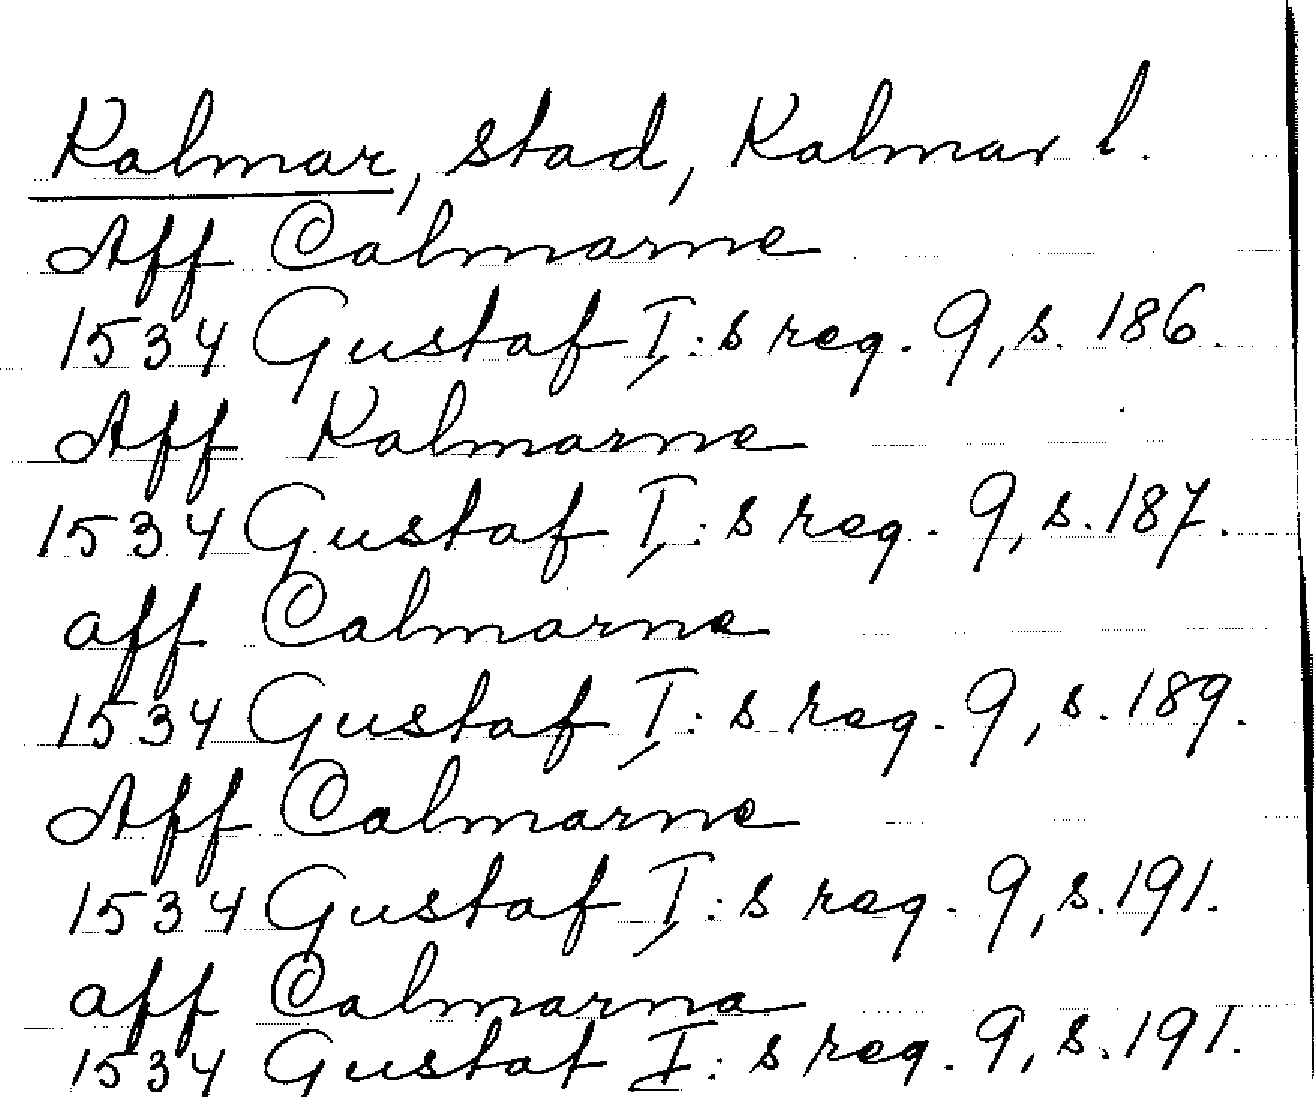 Kalmar, stad, Kalmar l.
Aff Calmarne
1534 Gustaf I:s reg. 9, s. 186.
Aff Kalmarne
1534 Gustaf I:s reg. 9, s. 187.
aff Calmarne
1534 Gustaf I:s reg. 9, s. 189.
Aff Calmarne
1534 Gustaf I:s reg. 9, s. 191.
aff Calmarna
1534 Gustaf I:s reg. 9, s. 191.